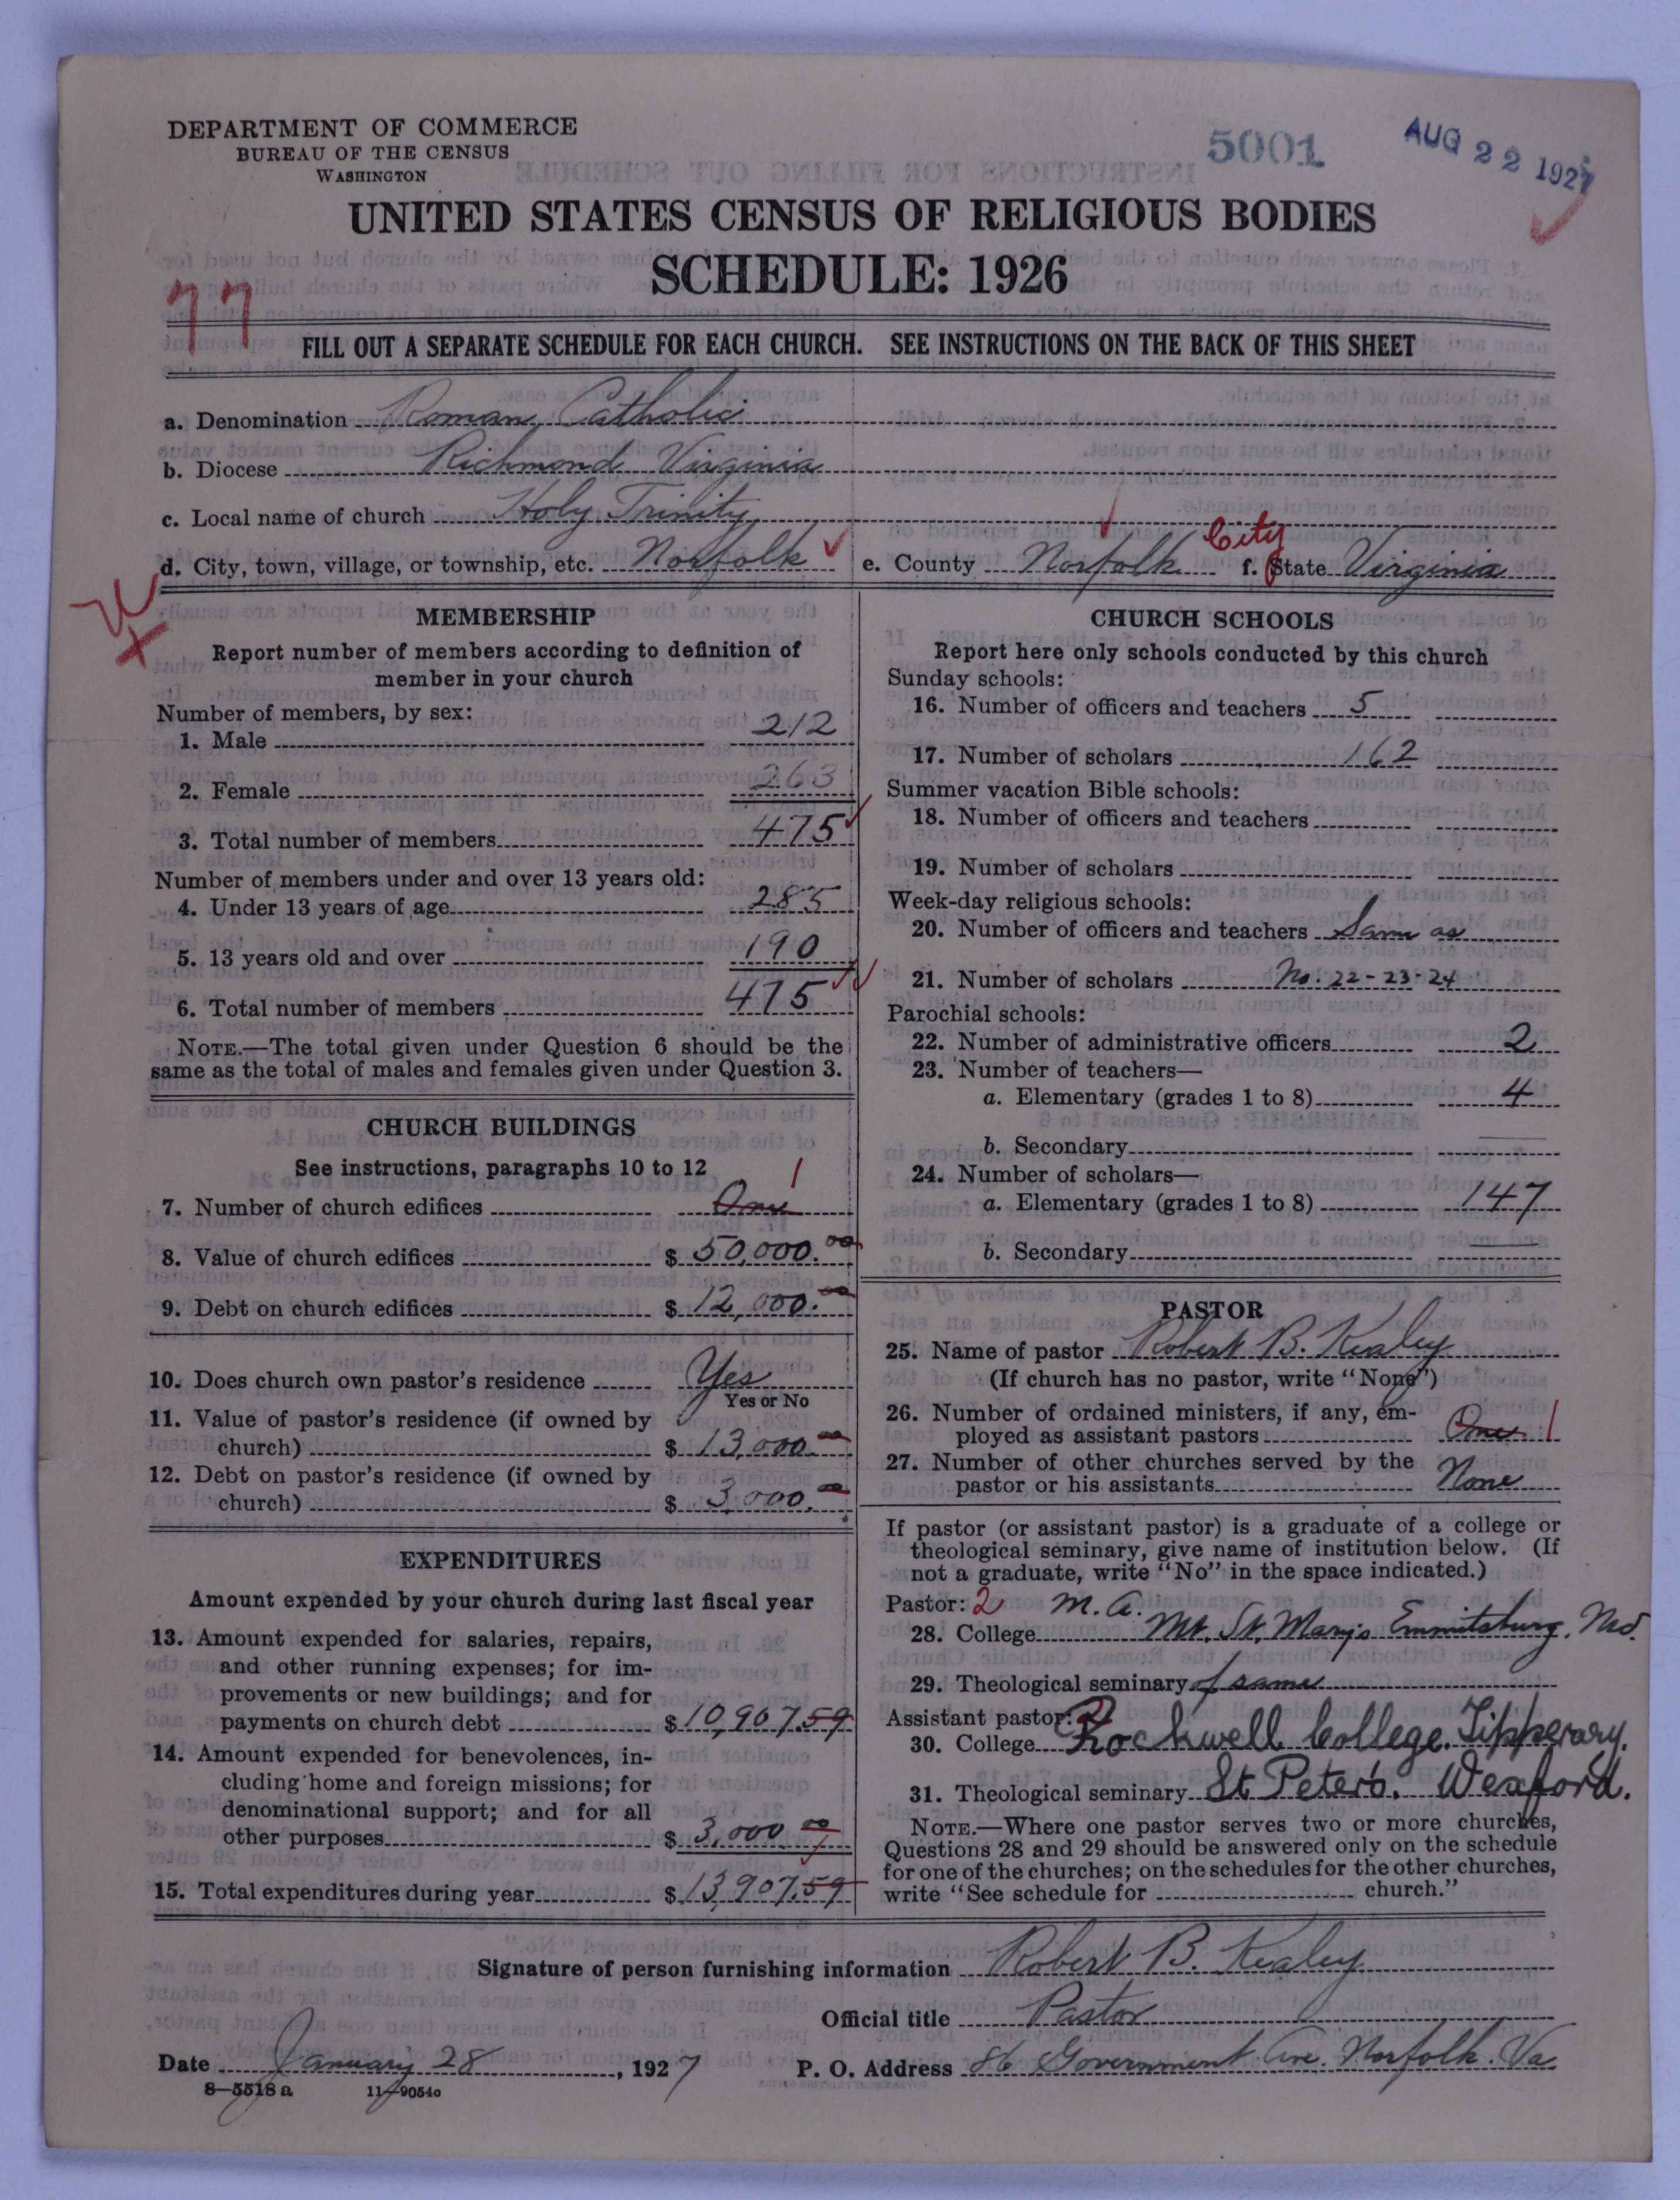 DEPARTMENT OF COMMERCE
BUREAU OF THE CENSUS
WASHINGTON
5001
AUG 22 1927
UNITED STATES CENSUS OF RELIGIOUS BODIES
SCHEDULE: 1926
77
FILL OUT A SEPARATE SCHEDULE FOR EACH CHURCH. SEE INSTRUCTIONS ON THE BACK OF THIS SHEET
a. Denomination Roman Catholic
b. Diocese Richmond Virginia
c. Local name of church Holy Trinity
d. City, town, village, or township, etc. Norfolk e. County Norfolk City f. State Virginia
MEMBERSHIP
Report number of members according to definition of
member in your church
Number of members, by sex:
1. Male 212
2. Female 263
3. Total number of members 475
Number of members under and over 13 years old:
4. Under 13 years of age 285
5. 13 years old and over 190
6. Total number of members 475
NOTE.—The total given under Question 6 should be the
same as the total of males and females given under Question 3.
CHURCH BUILDINGS
See instructions, paragraphs 10 to 12
7. Number of church edifices One 1
8. Value of church edifices $ 50,000.00
9. Debt on church edifices $ 12,000.00
10. Does church own pastor's residence Yes
Yes or No
11. Value of pastor's residence (if owned by
church) $ 13,000.00
12. Debt on pastor's residence (if owned by
church) $ 3,000.00
EXPENDITURES
Amount expended by your church during last fiscal year
13. Amount expended for salaries, repairs,
and other running expenses; for im-
provements or new buildings; and for
payments on church debt $ 10,907.59
14. Amount expended for benevolences, in-
cluding home and foreign missions; for
denominational support; and for all
other purposes $ 3,000.00
15. Total expenditures during year $ 13,907.59
CHURCH SCHOOLS
Report here only schools conducted by this church
Sunday schools:
16. Number of officers and teachers 5
17. Number of scholars 162
Summer vacation Bible schools:
18. Number of officers and teachers
19. Number of scholars
Week-day religious schools:
20. Number of officers and teachers Same as
21. Number of scholars No. 22-23-24
Parochial schools:
22. Number of administrative officers 2
23. Number of teachers—
a. Elementary (grades 1 to 8) 4
b. Secondary
24. Number of scholars—
a. Elementary (grades 1 to 8) 147
b. Secondary
PASTOR
25. Name of pastor Robert B. Kealey
(If church has no pastor, write "None")
26. Number of ordained ministers, if any, em-
ployed as assistant pastors One 1
27. Number of other churches served by the
pastor or his assistants None
If pastor (or assistant pastor) is a graduate of a college or
theological seminary, give name of institution below. (If
not a graduate, write "No" in the space indicated.)
Pastor: 2 M.A.
28. College Mt. St. Mary's Emmitsburg, Md.
29. Theological seminary of same
Assistant pastor: 2
30. College Rockwell College. Tipperary.
31. Theological seminary St Peter's. Wexford.
NOTE.—Where one pastor serves two or more churches,
Questions 28 and 29 should be answered only on the schedule
for one of the churches; on the schedules for the other churches,
write "See schedule for church."
Signature of person furnishing information Robert B. Kealey
Official title Pastor
Date January 28, 1927 P. O. Address 86 Government Ave. Norfolk. Va.
8—5518 a 11—9054c